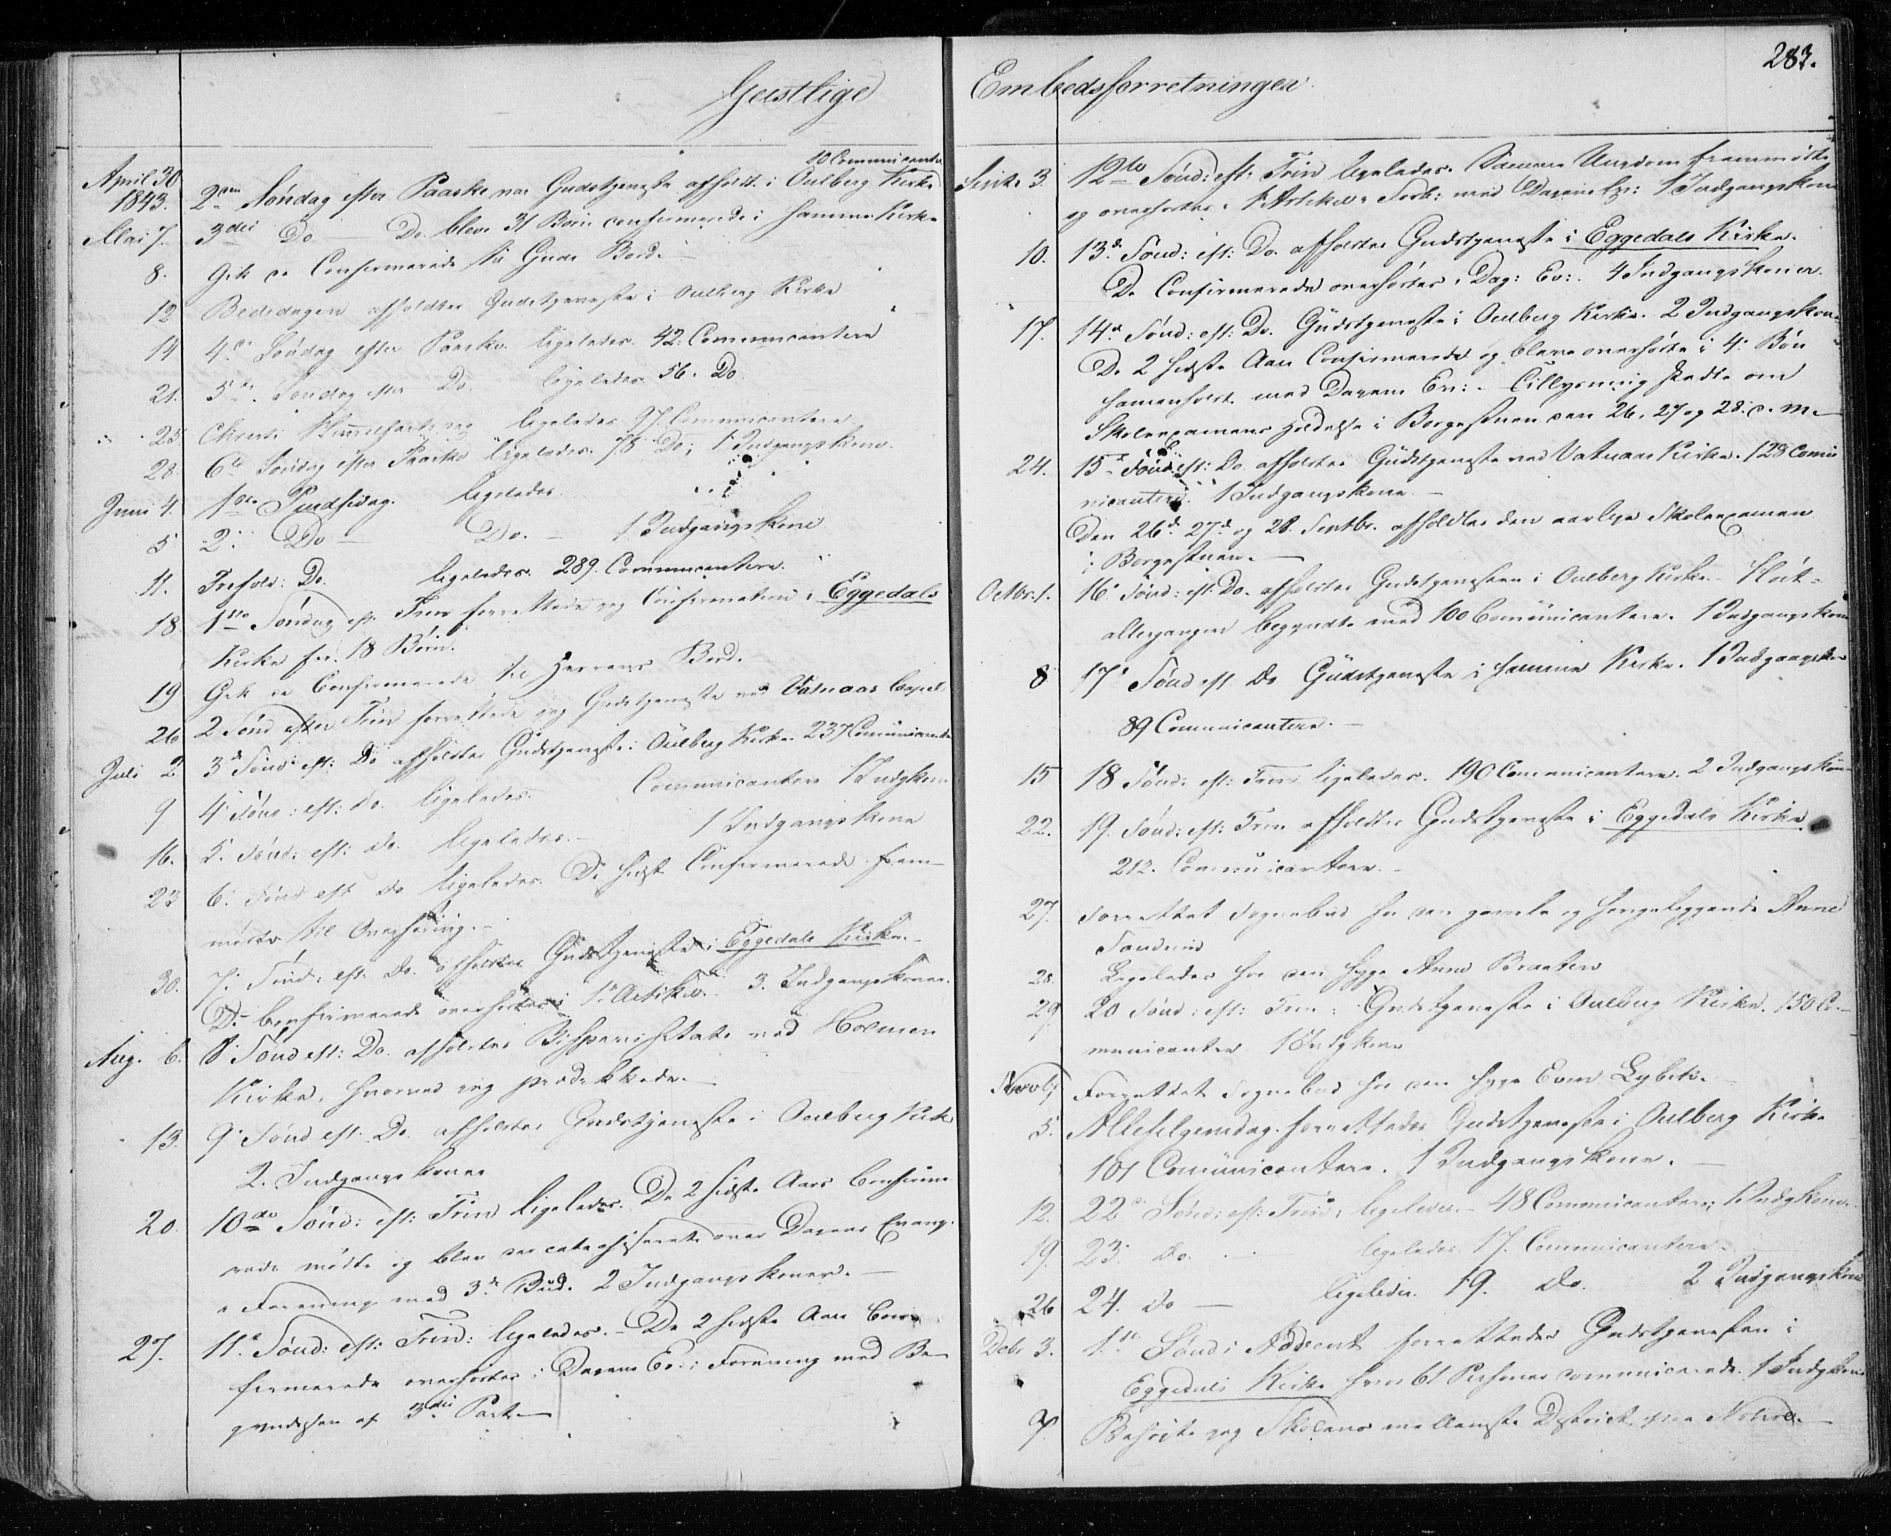 Geistlige
April 30 1843. 2den Søndag efter Paaske var Gudstjeneste afholdt i Oulberg Kirke 10 Communicanter
Mai 7. 3die Do Do bleve 31 Børn confirmerede i samme Kirke
8. Gik de Confirmerede til Guds Bord.
12 Bededagen afholdtes Gudstjeneste i Oulberg Kirke
14 4de Søndag efter Paaske ligeledes 42. Communicantere
21. 5te Søndag efter Do. ligeledes 56. Do
25 Christi Himmelfartsdag ligeledes 97 Communicantere
28. 6te Søndag efter Paaske ligeledes. 78 Do; 1 Indgangskone.
Juni 4. 1ste Pindsedag. ligeledes.
5 2. Do – Do. – 1 Indgangskone
11. Trefold: Do. ligeledes. 289. Communicantere.
18 1ste Søndag eft. Trin forrettede jeg Confirmation i Eggedals
Kirke for 18 Børn.
19 Gik de Confirmerede til Herrens Bord.
26 2 Sønd efter Trin forrettede jeg Gudstjeneste ved Vatnaas Capel
Juli 2 3d Sønd: eft: Do afholdtes Gudstjeneste i Oulberg Kirke 237 Comunicanter
9 4 Sønd: eft: do. ligeledes. Communicantere 1 Indgkone
16. 5. Sønd: eft: do. ligeledes. – 1 Indgangskone
23 6. Sønd eft do ligeledes. De sidst Confirmerede frem-
mødte til Overhøring. –
30. 7. Sønd: eft do. afholdtes Gudstjeneste i Eggedals Kirke. –
De Confirmerede overhørtes i 1ste Artikel. 3. Indgangskoner.
Aug. 6. 8 Sønd eft: Do. afholdtes Bispevisitats ved Holmen
Kirke, hvorved jeg prædikkede.
13. 9 Sønd eft. Do. afholdtes Gudstjeneste i Oulberg Kirke
2. Indgangskoner
20. 10de Sønd: eft: Trin ligeledes. De 2 sidste Aars Confirme
rede mødte og blev de catechiserede over Dagens Evang.
i Forening med 3de Bud. 2 Indgangskoner. –
27. 11te Sønd: eft: Trin: ligeledes. – De 2 sidste Aars Con
firmerede overhørtes i Dagens Ev. i Forening med Be
gyndelsen af 3die Part. –
Embedsforretninger
283.
Septbr 3. 12te Sønd: eft: Trin ligeledes. Samme Ungdom fremmødte
og overhørtes i 1ste Artikel i Forb: med Dagens Ev: 1 Indgangskone
10. 13d. Sønd: eft: Do. afholdtes Gudstjeneste i Eggedals Kirke.
De Confirmerede overhørtes i Dag: Ev:. 4 Indgangskoner.
17. 14d Sønd: eft: Do. Gudstjeneste i Oulberg Kirke. 2 Indgangskoner
De 2 sidste Aars Confirmerede og bleve overhørte i 4de Bøn
samenholdt med Dagens Ev:. Tillysning skedte om
Skoleexamens Holdelse i Borgestuen den 26, 27 og 28. d. M. –
24. 15d Sønd: eft: Do afholdtes Gudstjeneste ved Vatnaas Kirke. 128 Comu
nicantere. 1 Indgangskone. –
Den 26d. 27d. og 28. Septbr. afholdtes den aarlige Skoleexamen
i Borgestuen. –
Octbr. 1. 16d Sønd: eft: Do. afholdtes Gudstjenesten i Oulberg Kirke – Høst-
altergangen begyndte med 100 Comunicantere. 1 Indgangskone
8 17d Sønd eft Do Gudstjeneste i samme Kirke. 1 Indgangskone
89 Communicantere. –
15 18 Sønd: eft: Trin ligeledes. 190 Comunicantere. 2 Indgangskoner
22. 19. Sønd: eft: Trin. afholdtes Gudstjeneste i Eggedals Kirke
212. Communicantere. –
27. Forrettet Sognebud hos den gamle og sengeliggende Anne
28. Ligeledes hos den syge Anne Braaten
29 20 Sønd: eft: Trin: Gudstjeneste i Oulberg Kirke. 150 Co-
municanter 1 Indgkone
Novbr Forrettet Sognebud hos den syge Even Lybek.
5. Allehelgensdag forrettedes Gudstjeneste i Oulberg Kirke
101 Comunicantere. 1 Indgangskone. –
12. 22d Sønd: eft: Trin: ligeledes. – 48 Communicantere; 1 Indgkone.
19. 23. Do. – ligeledes. 17. Communicantere.
26 24. do – ligeledes. 19. do. 2 Indgangskoner
Debr 3. 1ste Sønd i Advent forrettedes Gudstjenesten i
Eggedals Kirke hvor 61 Personer communicerede. 1 Indgkone
7. Besøgte jeg Skolens mellemste District paa